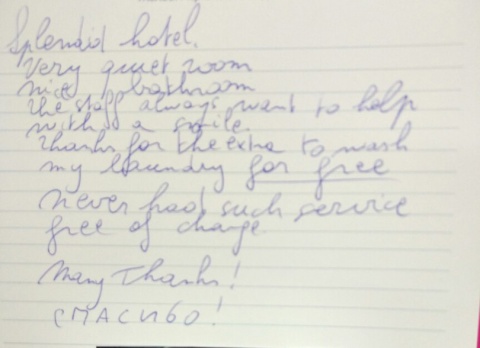 Splendid hotel.
Very quiet room
nice bathroom
the staff always want to help
with a smile.
Thanks for the extra to wash
my laundry for free
Never had such service
free of charge
Many Thanks!
СПАСИБО!